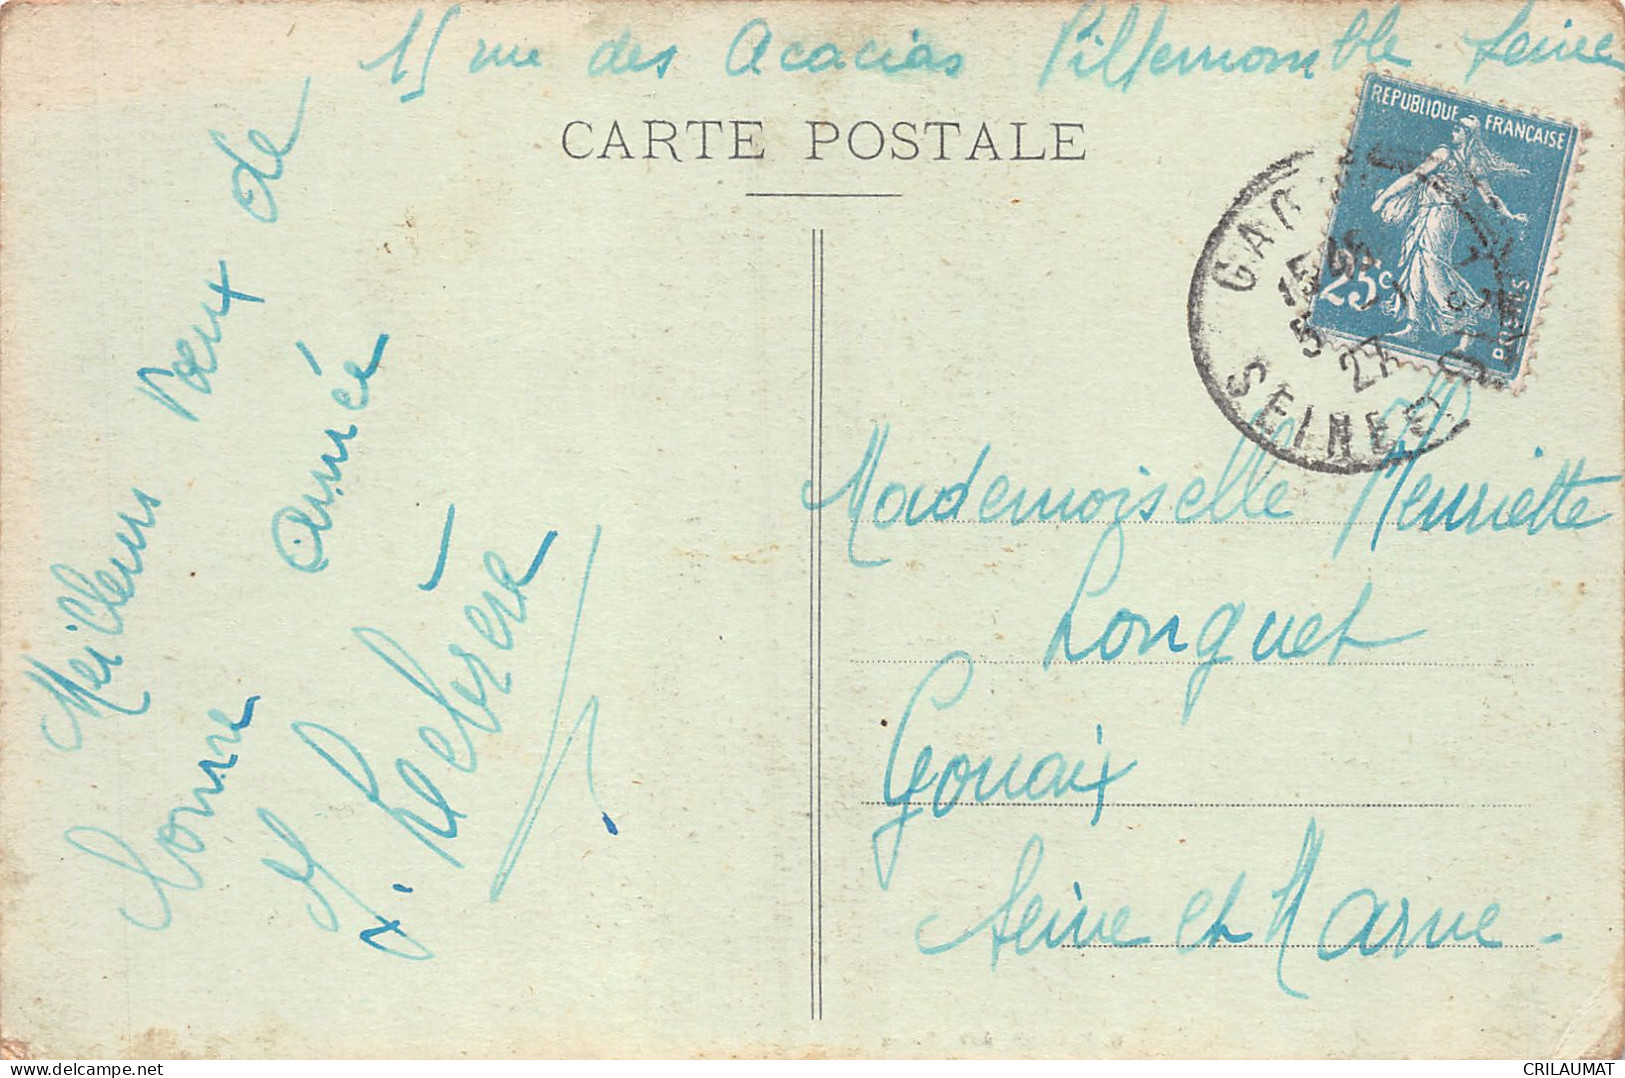 15 rue des Acacias Villemomble Seine
CARTE POSTALE
REPUBLIQUE FRANÇAISE
25c
POSTES
5
27
SEINE
Meilleurs vœux de
bonne année
Mademoiselle Henriette
Longuet
Gouaix
Seine et Marne -
delcampe.net
CRILAUMAT